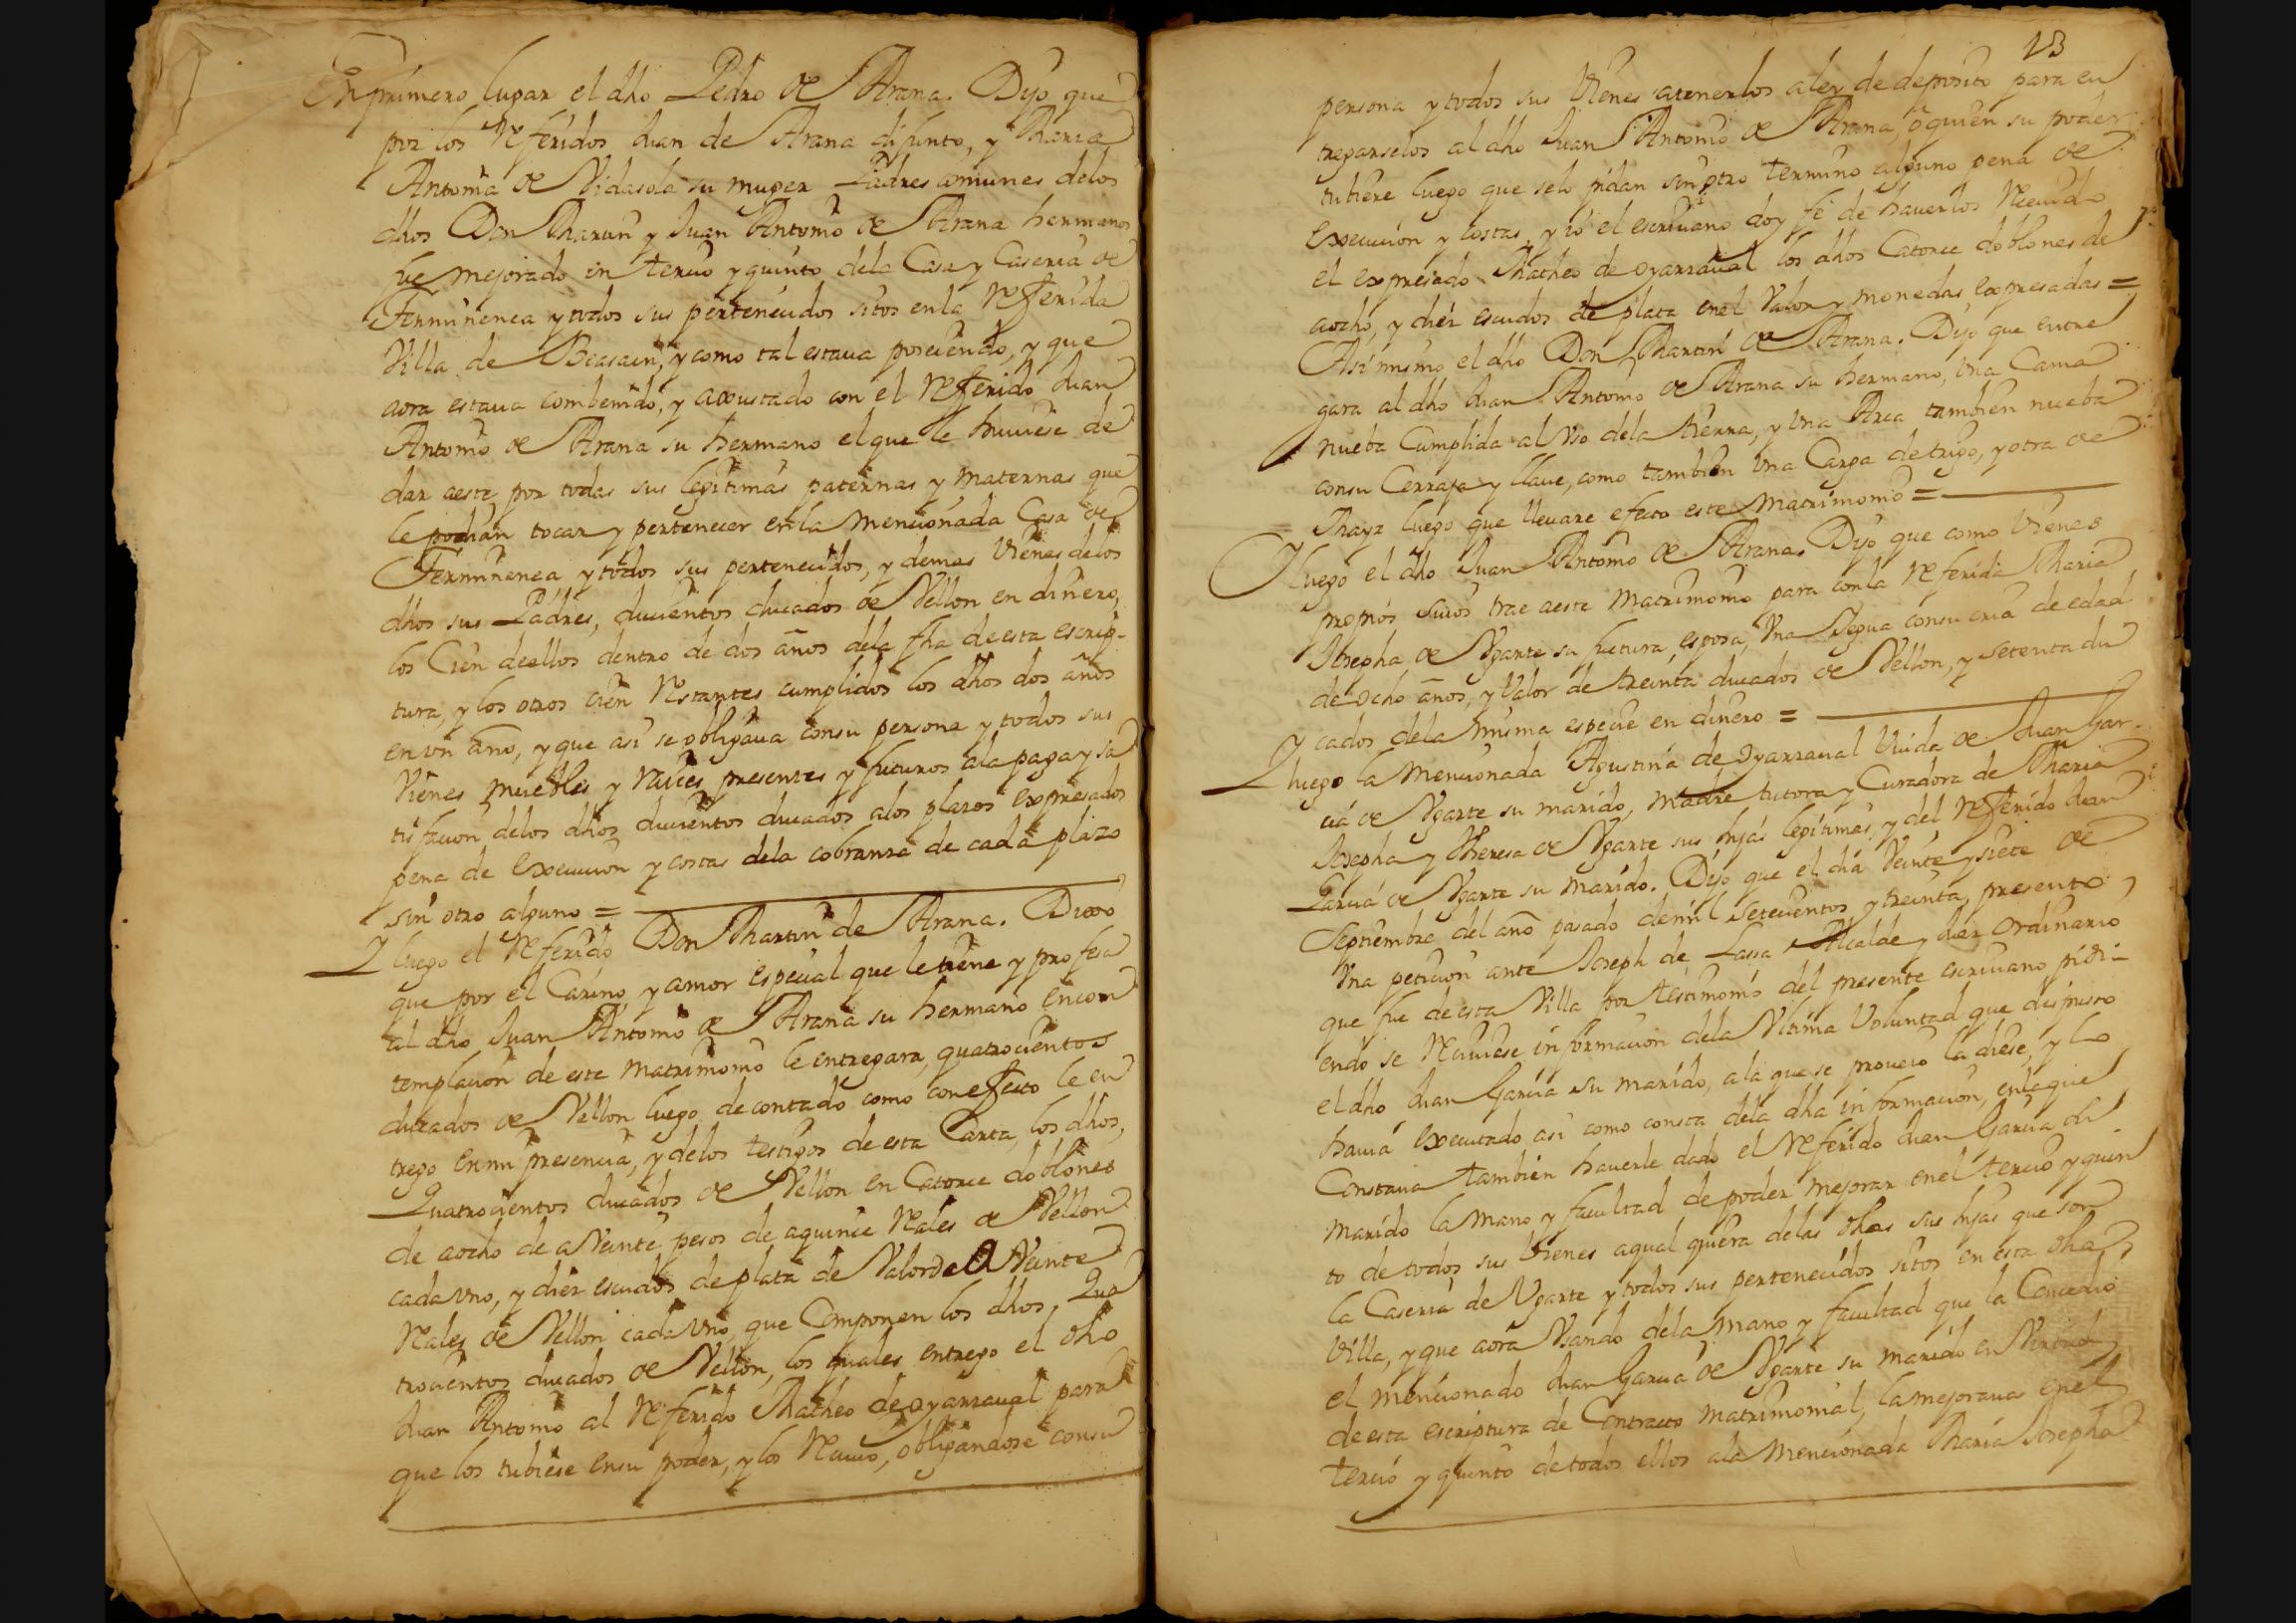 En primero lugar el dho Pedro de Arana. Dijo que
por los Referidos Juan de Arana difunto, y Maria
Antonia de Vidasola su muger Padres comunes delos
dhos Don Martin y Juan Antonio de Arana hermanos
fue mejorado en tercio y quinto dela Casa y Caseria de
Ferminenea y todos sus pertenecidos sitos enla Referida
Villa de Beasain, y como tal estaua poseiendo, y que
aora estaua combenido, y axustado con el Referido Juan
Antonio de Arana su hermano el que le huuiese de
dar aeste por todas sus legitimas paternas y maternas que
le podian tocar y pertenecer enla mencionada Casa de
Ferminenea y todos sus pertenecidos, y demas Vienes delos
dhos sus Padres, ducientos ducados de Vellon en dinero,
los Cien deellos dentro de dos años dela fha de esta escrip-
tura, y los otros cien Restantes cumplidos los dhos dos años
en vn año, y que asi se obligaua consu persona y todos sus
Vienes muebles y Raices presentes y futuros ala paga y sa
tisfacion delos dhos ducientos ducados alos plazos expresados
pena de execucion y costas dela cobranza de cada plazo
sin otro alguno =
Y luego el Referido Don Martin de Arana. Dixo
que por el Carino, y amor especial que le tiene y profesa
al dho Juan Antonio de Arana su hermano en con
templacion de este matrimonio le entregara, quatrocientos
ducados de Vellon luego de contado como con efecto le en
trego en mi presencia, y delos testigos de esta Carta, los dhos,
Quatrocientos ducados de Vellon en Catorce doblones
de aocho de a Veinte pesos de aquince Rales de Vellon
cada vno, y diez escudos de plata de Valor de a Veinte
Rales de Vellon cada vno, que Componen los dhos, Qua
trocientos ducados de Vellon, los quales entrego el dho
Juan Antonio al Referido Matheo de oyarzaual para
que los tubiese en su poder, y los Reciuio, obligandose consu
13
persona y todos sus Vienes atenerlos aley de deposito para en
tregarselos al dho Juan Antonio de Arana, o quien su poder
tubiere luego que selo pidan sin otro termino alguno pena de
execucion y costas, y io el escriuano doy fe de hauerlos Reciuido
el expresado Matheo de oyarzaual los dhos Catorce doblones de
aocho, y diez escudos de plata enel Valor y monedas expresadas =
Asi mismo el dho Don Martin de Arana. Dijo que entre
gara al dho Juan Antonio de Arana su hermano, Vna Cama
nueba Cumplida al Vso dela tierra, y Vna Arca tambien nueba
consu Cerraja y llaue, como tambien Vna Carga de trigo, y otra de
Mayz luego que lleuare efecto este matrimonio =
Y luego el dho Juan Antonio de Arana. Dijo que como Vienes
propios suios trae aeste matrimonio para conla Referida Maria
Josepha de Vgarte su futura esposa, Vna Yegua consu cria de edad
de ocho años, y Valor de treinta ducados de Vellon, y setenta du
cados dela misma especie en dinero =
Y luego la mencionada Agustina de oyarzaual Viuda de Juan Gar-
cia de Vgarte su marido, madre tutora y Curadora de Maria
Josepha y Theresa de Vgarte sus hijas legitimas, y del Referido Juan
Garcia de Vgarte su marido. Dijo que el dia Veinte y siete de
Septiembre del año pasado demil setecientos y treinta, presento
Vna peticion ante Joseph de Lassa Alcalde y Juez ordinario
que fue de esta Villa por testimonio del presente escriuano pidi-
endo se Reciuiese informacion dela Vltima Voluntad que dispuso
el dho Juan Garcia su marido, ala que se proueio la diese, y lo
hauia executado asi como consta dela dha informacion, enla que
Constaua tambien hauerle dado el Referido Juan Garcia su
marido la mano y facultad de poder mejorar enel tercio y quin
to de todos sus Vienes aqual quiera delas dhas sus hijas que son
la Caseria de Vgarte y todos sus pertenecidos sitos en esta dha
Villa, y que aora Vsando dela mano y facultad que la Concedio
el mencionado Juan Garcia de Vgarte su marido en Virtud
de esta escriptura de Contracto matrimonial, la mejoraua enel
tercio y quinto de todos ellos ala mencionada Maria Josepha